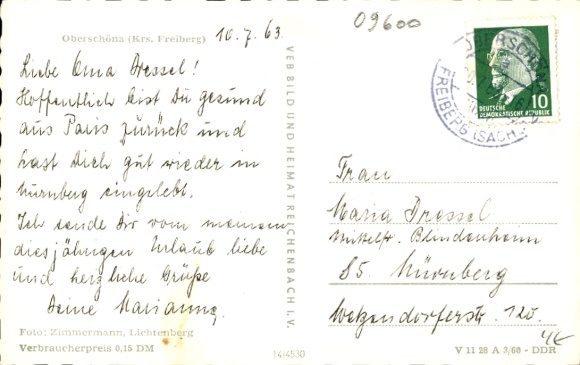 Oberschöna (Krs. Freiberg)
10.7.63
Liebe Oma Dressel!
Hoffentlich bist Du gesund
aus Paris zurück und
hast Dich gut wieder in
Nürnberg eingelebt.
Ich sende Dir von meinem
diesjährigen Urlaub liebe
und herzliche Grüße
Deine Marianne.
Foto: Zimmermann, Lichtenberg
Verbraucherpreis 0,15 DM
VEB BILD UND HEIMAT REICHENBACH I. V.
14/4530
09600
OBERSCHÖNA
FREIBERG (SACHS)
DEUTSCHE
DEMOKRATISCHE REPUBLIK
10
Frau
Maria Dressel
Mittelfr. Blindenheim
85 Nürnberg
Welzendorferstr. 120
V 11 28 A 3/60 - DDR